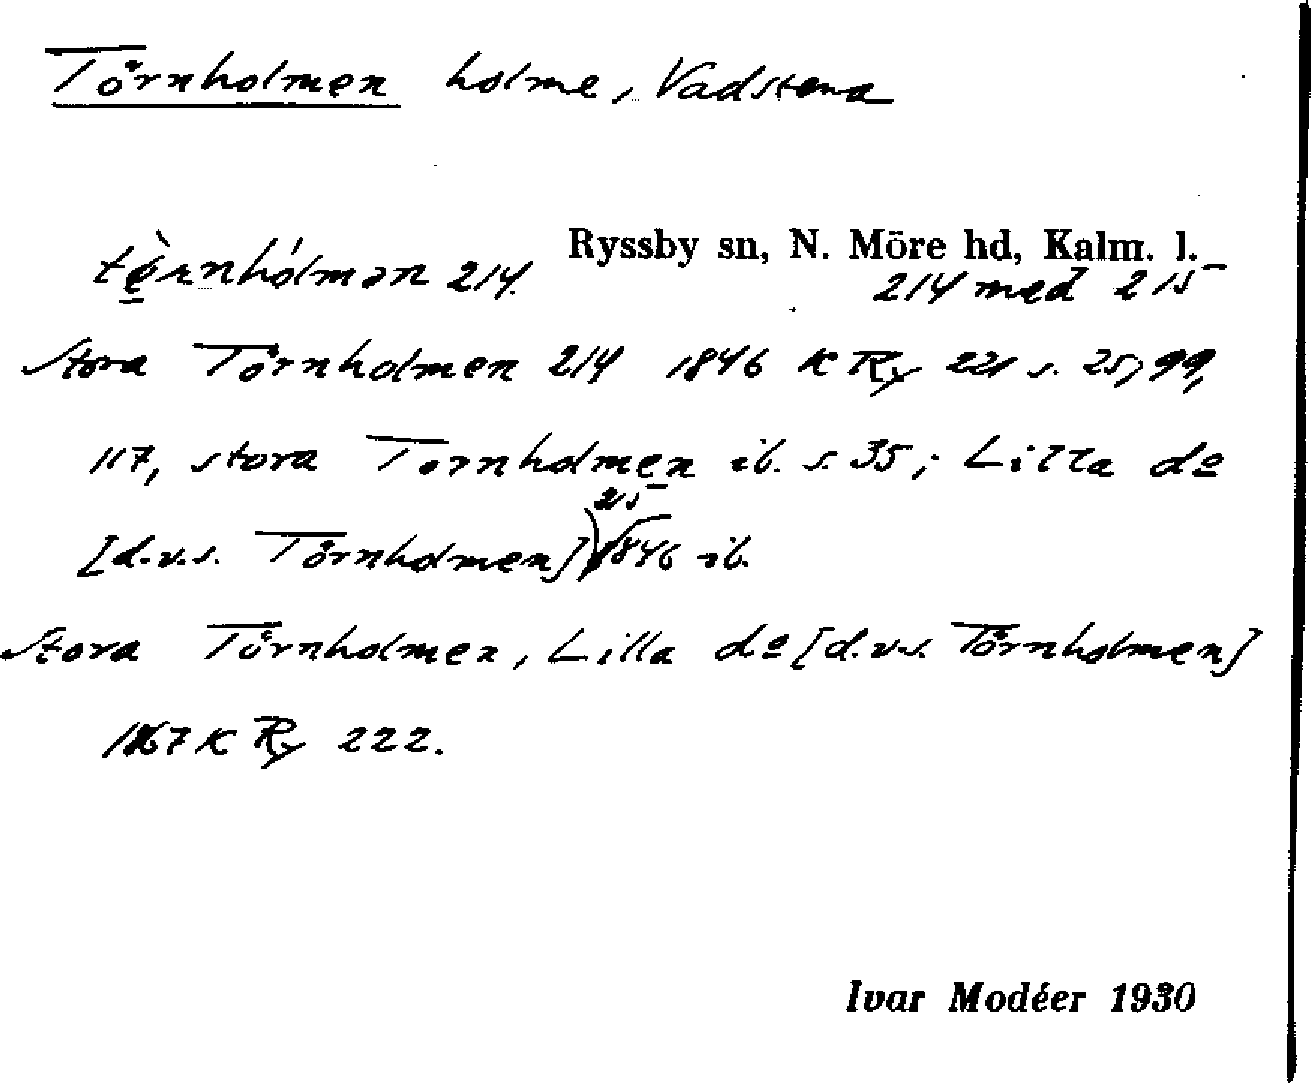 Törnholmen holme, Vadstena
Ryssby sn, N. Möre hd, Kalm. l.
tè̱rnhólmən 214. 214 med 215
Stora Törnholmen 214 1846 K Ry 221 s. 25, 99,
117, stora Tornholmen ib. s. 35; Lilla do
215
[d.v.s. Törnholmen] 1846 ib.
Stora Törnholmen, Lilla do [d.v.s. Törnholmen]
1867 K Ry 222.
Ivar Modéer 1930